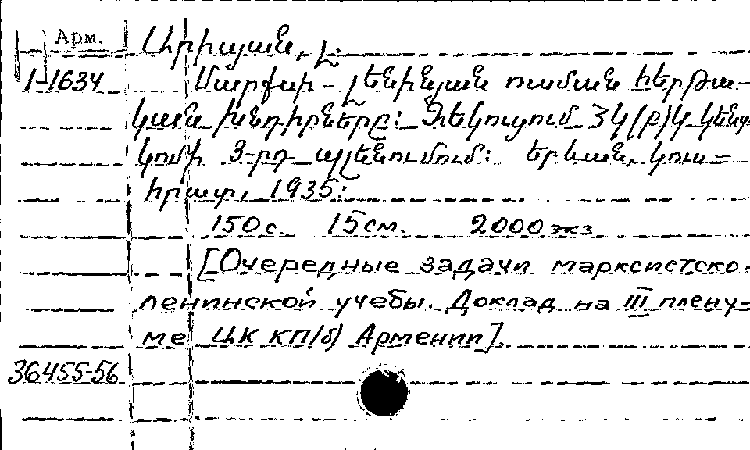 Арм.
1-1634
Մարքսի-լենինյան ուսման հերթա-
կան խնդիրները: Զեկուցում ՀԿ(բ)Կ Կենտ
կոմի 3-րդ պլենումում: Երևան, կու=
հրատ, 1935:
150 с. 15 см. 2000 экз
[Очередные задачи марксистско-
ленинской учебы. Доклад на III плену-
ме ЦК КП(б) Армении].
36455-56